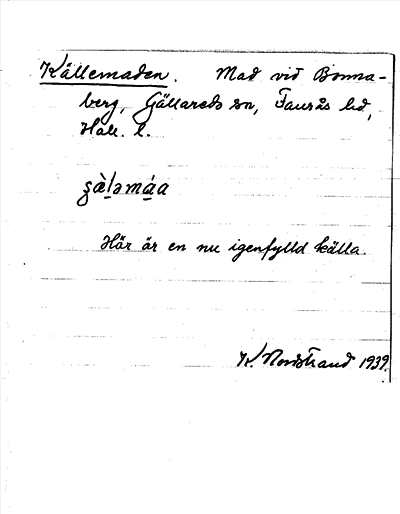 Källemaden. Mad vid Bonna-
berg, Gällareds sn, Faurås hd,
Hall. l.
Här är en nu igenfylld källa.
K. Nordstrand 1939.